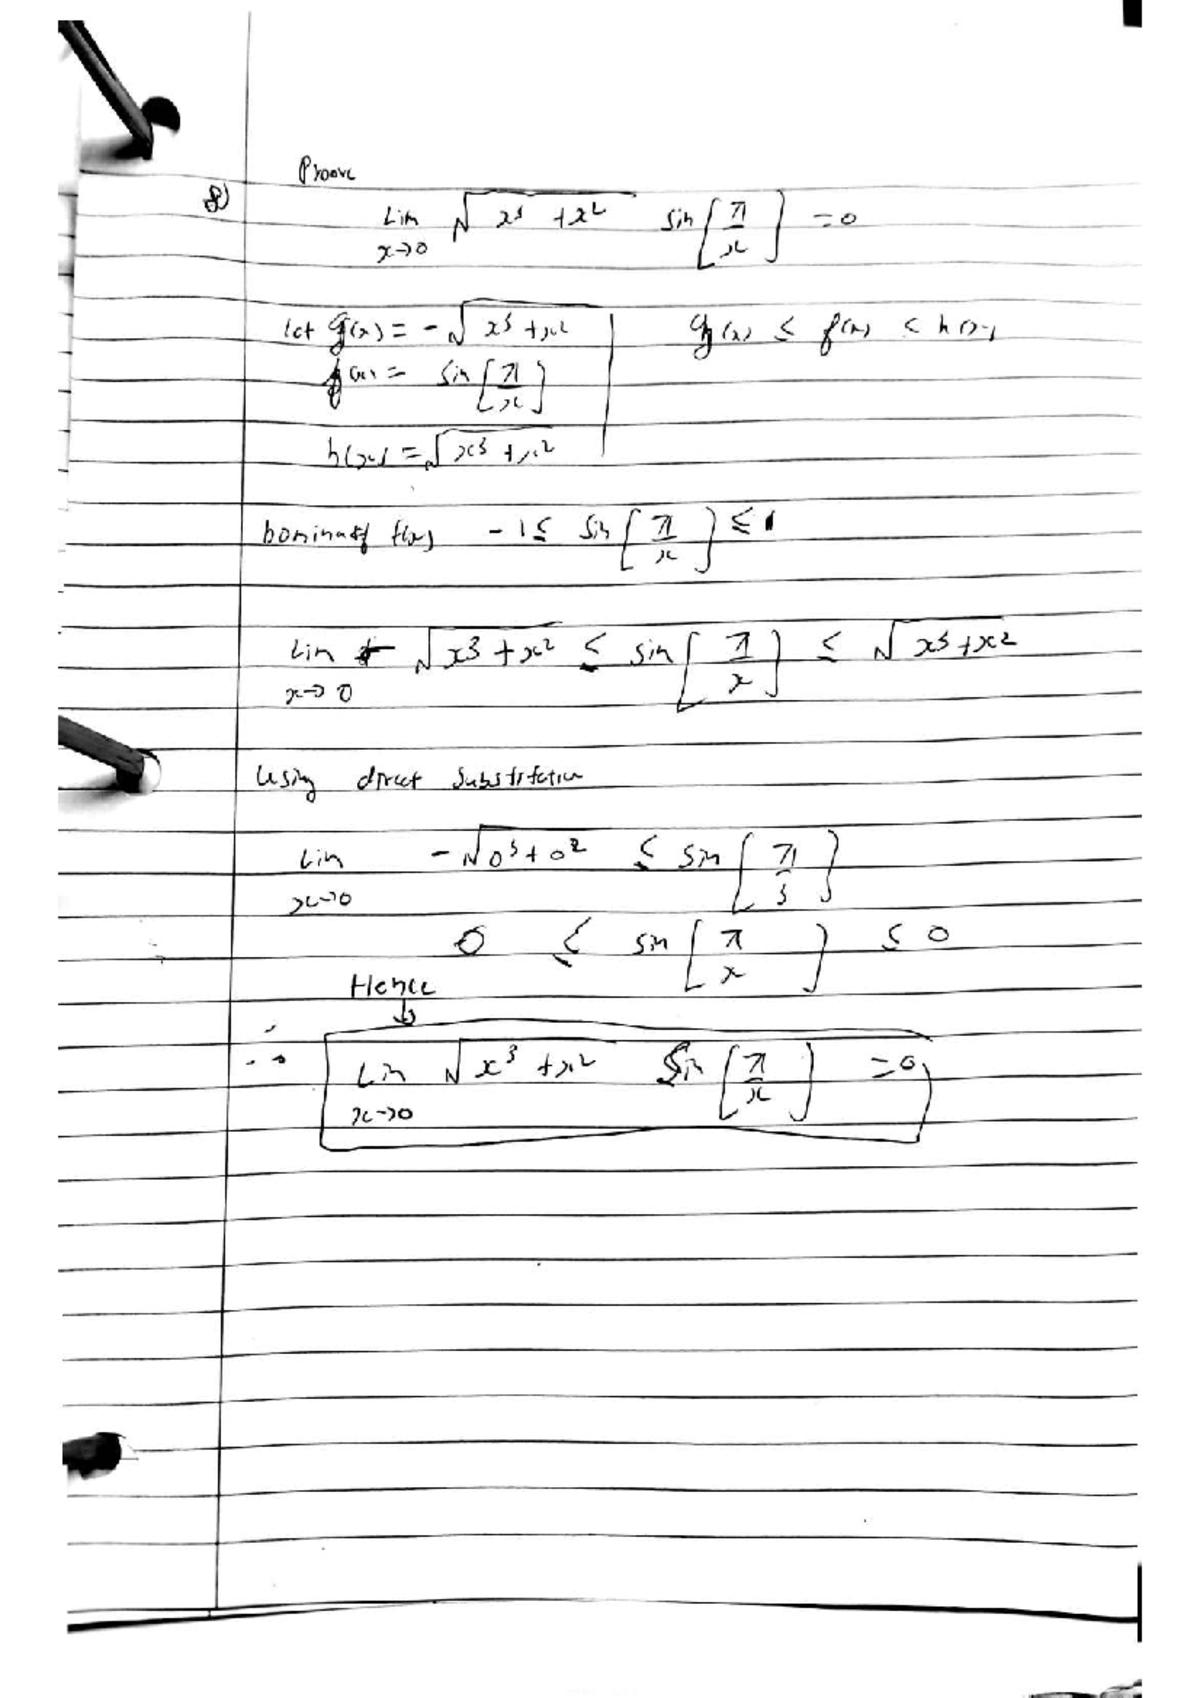 Proove
8) Lim x→0 √(x³ + x²) sin[π/x] = 0
let g(x) = -√(x³ + x²) | g(x) ≤ f(x) ≤ h(x)
f(x) = sin[π/x]
h(x) = √(x³ + x²)
f(x) -1 ≤ sin[π/x] ≤ 1
Lim x→0 - √(x³ + x²) ≤ sin[π/x] ≤ √(x³ + x²)
Using direct Substitution
Lim x→0 -√(0³ + 0²) ≤ sin[π/3]
0 ≤ sin[π/x] ≤ 0
Hence
↓
∴ Lim x→0 √(x³ + x²) Sin[π/x] = 0